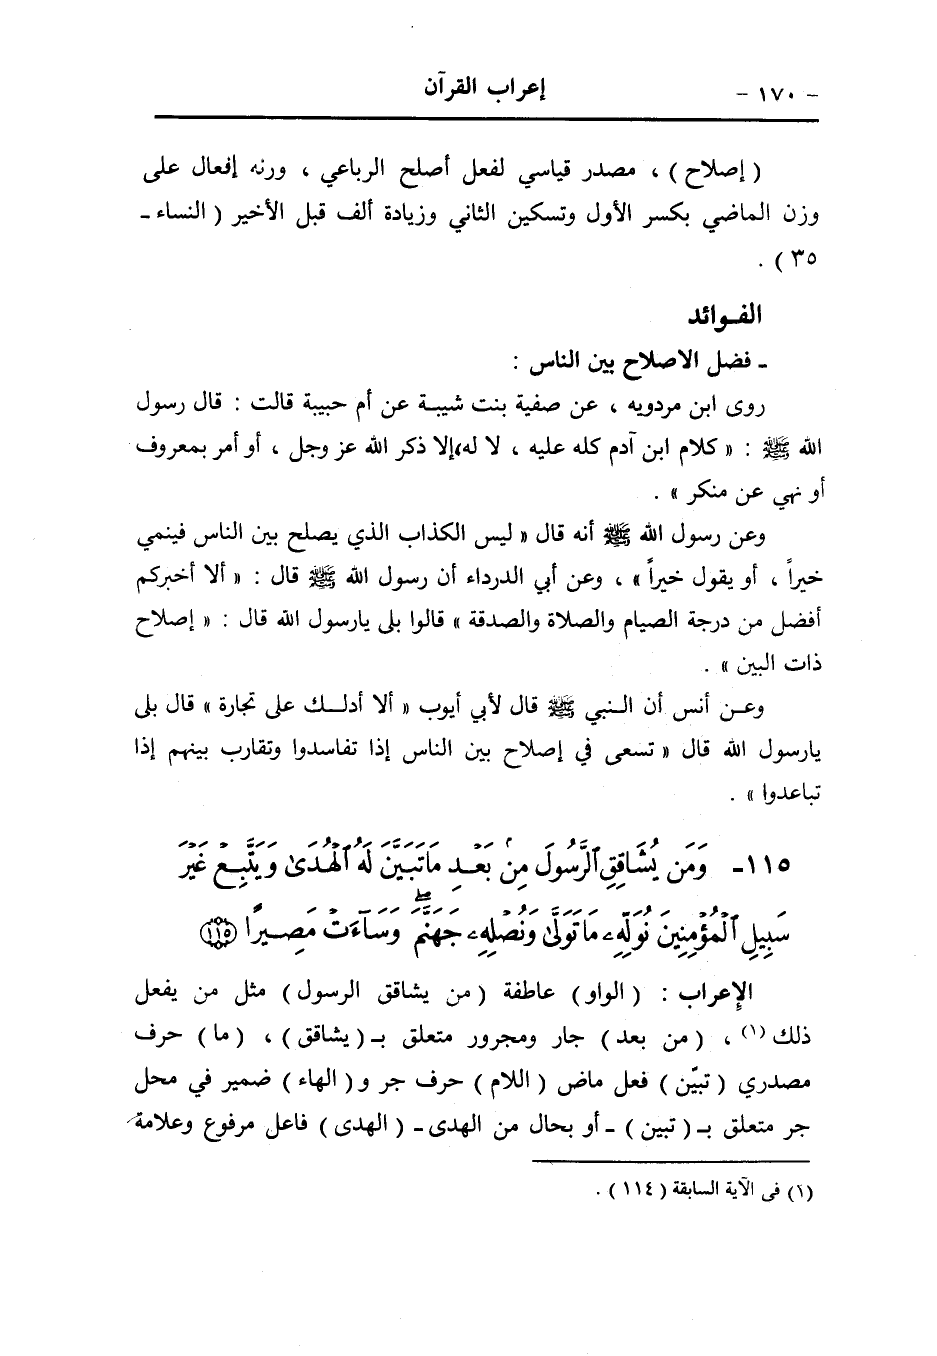 - ١٧٠ - إعراب القرآن
( إصلاح ) ، مصدر قياسي لفعل أصلح الرباعي ، ورنه إفعال على
وزن الماضي بكسر الأول وتسكين الثاني وزيادة ألف قبل الأخير ( النساء ـ
٣٥ ) .
الفـوائد
ـ فضل الاصلاح بين الناس :
روى ابن مردويه ، عن صفية بنت شيبـة عن أم حبيبة قالت : قال رسول
الله ﷺ : « كلام ابن آدم كله عليه ، لا له،إلا ذكر الله عز وجل ، أو أمر بمعروف
أو نهي عن منكر » .
وعن رسول الله ﷺ أنه قال « ليس الكذاب الذي يصلح بين الناس فينمي
خيراً ، أو يقول خيراً » ، وعن أبي الدرداء أن رسول الله ﷺ قال : « ألا أخبركم
أفضل من درجة الصيام والصلاة والصدقة » قالوا بلى يارسول الله قال : « إصلاح
ذات البين » .
وعـن أنس أن الـنبي ﷺ قال لأبي أيوب « ألا أدلـك على تجارة » قال بلى
يارسول الله قال « تسعى في إصلاح بين الناس إذا تفاسدوا وتقارب بينهم إذا
تباعدوا » .
١١٥ ـ وَمَن يُشَاقِقِ ٱلرَّسُولَ مِنۢ بَعْدِ مَا تَبَيَّنَ لَهُ ٱلْهُدَىٰ وَيَتَّبِعْ غَيْرَ
سَبِيلِ ٱلْمُؤْمِنِينَ نُوَلِّهِۦ مَا تَوَلَّىٰ وَنُصْلِهِۦ جَهَنَّمَ ۖ وَسَآءَتْ مَصِيرًا ﴿١١٥﴾
الإعراب : ( الواو ) عاطفة ( من يشاقق الرسول ) مثل من يفعل
ذلك (١) ، ( من بعد ) جار ومجرور متعلق بـ ( يشاقق ) ، ( ما ) حرف
مصدري ( تبيّن ) فعل ماض ( اللام ) حرف جر و ( الهاء ) ضمير في محل
جر متعلق بـ ( تبين ) ـ أو بحال من الهدى ـ ( الهدى ) فاعل مرفوع وعلامة
(١) في الآية السابقة ( ١١٤ ) .